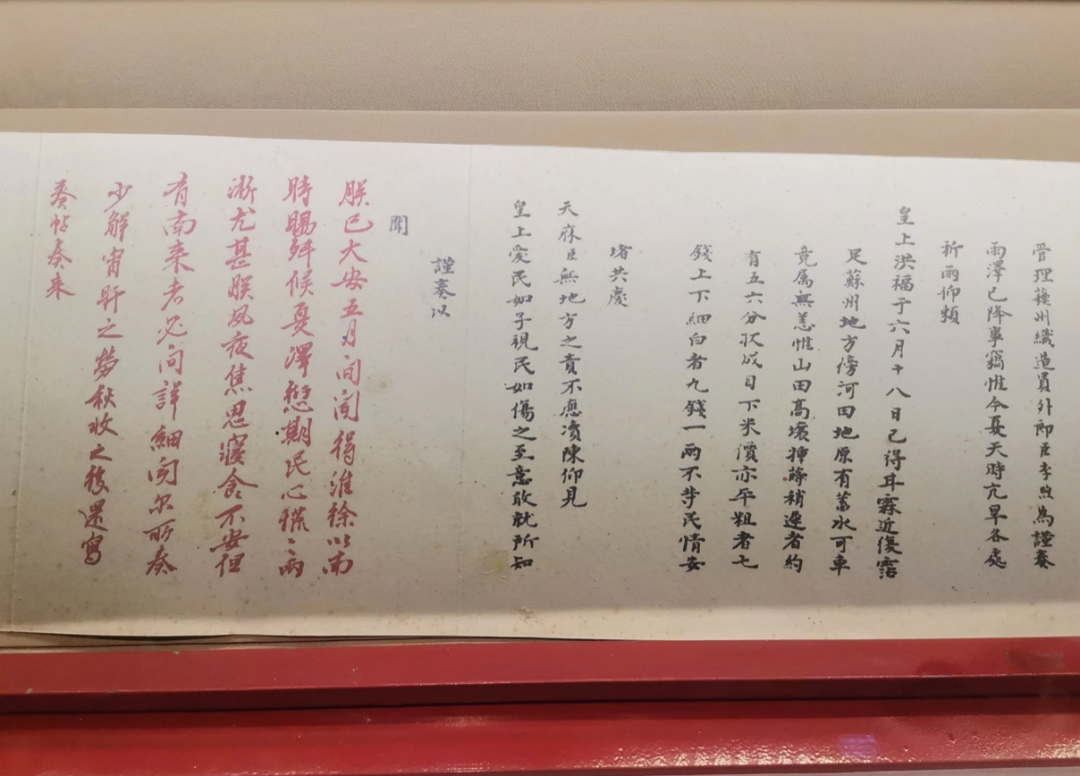 管理蘓州織造員外郎臣李煦為謹奏
雨澤已降事竊惟今夏天時亢旱各處
祈雨仰頼
皇上洪福于六月十八日已得耳霖近復霑
足蘇州地方傍河田地原有蓄水可車
竟属無恙惟山田高壤揷蒔稍遲者約
有五六分收成目下米價亦平粗者七
錢上下細白者九錢一兩不等民情安
堵共慶
天庥臣無地方之責不應凟陳仰見
皇上愛民如子視民如傷之至意敢就所知
謹奏以
聞
朕已大安五月间闻得淮徐以南
時暘舛候夏澤愆期民心慌〻两
浙尤甚朕夙夜焦思寝食不安但
有南来者必问詳細闻尔所奏
少解宵旰之勞秋收之後還寫
奏帖奏来